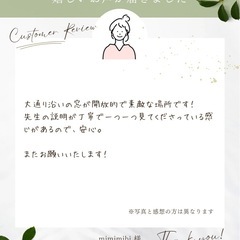 嬉しいお声が届きました
Customer Review
大通り沿いの窓が開放的で素敵な場所です!
先生の説明が丁寧で一つ一つ見てくださっている感
じがあるので、安心。
またお願いいたします!
※写真と感想の方は異なります
mimimihi 様
Thank you!